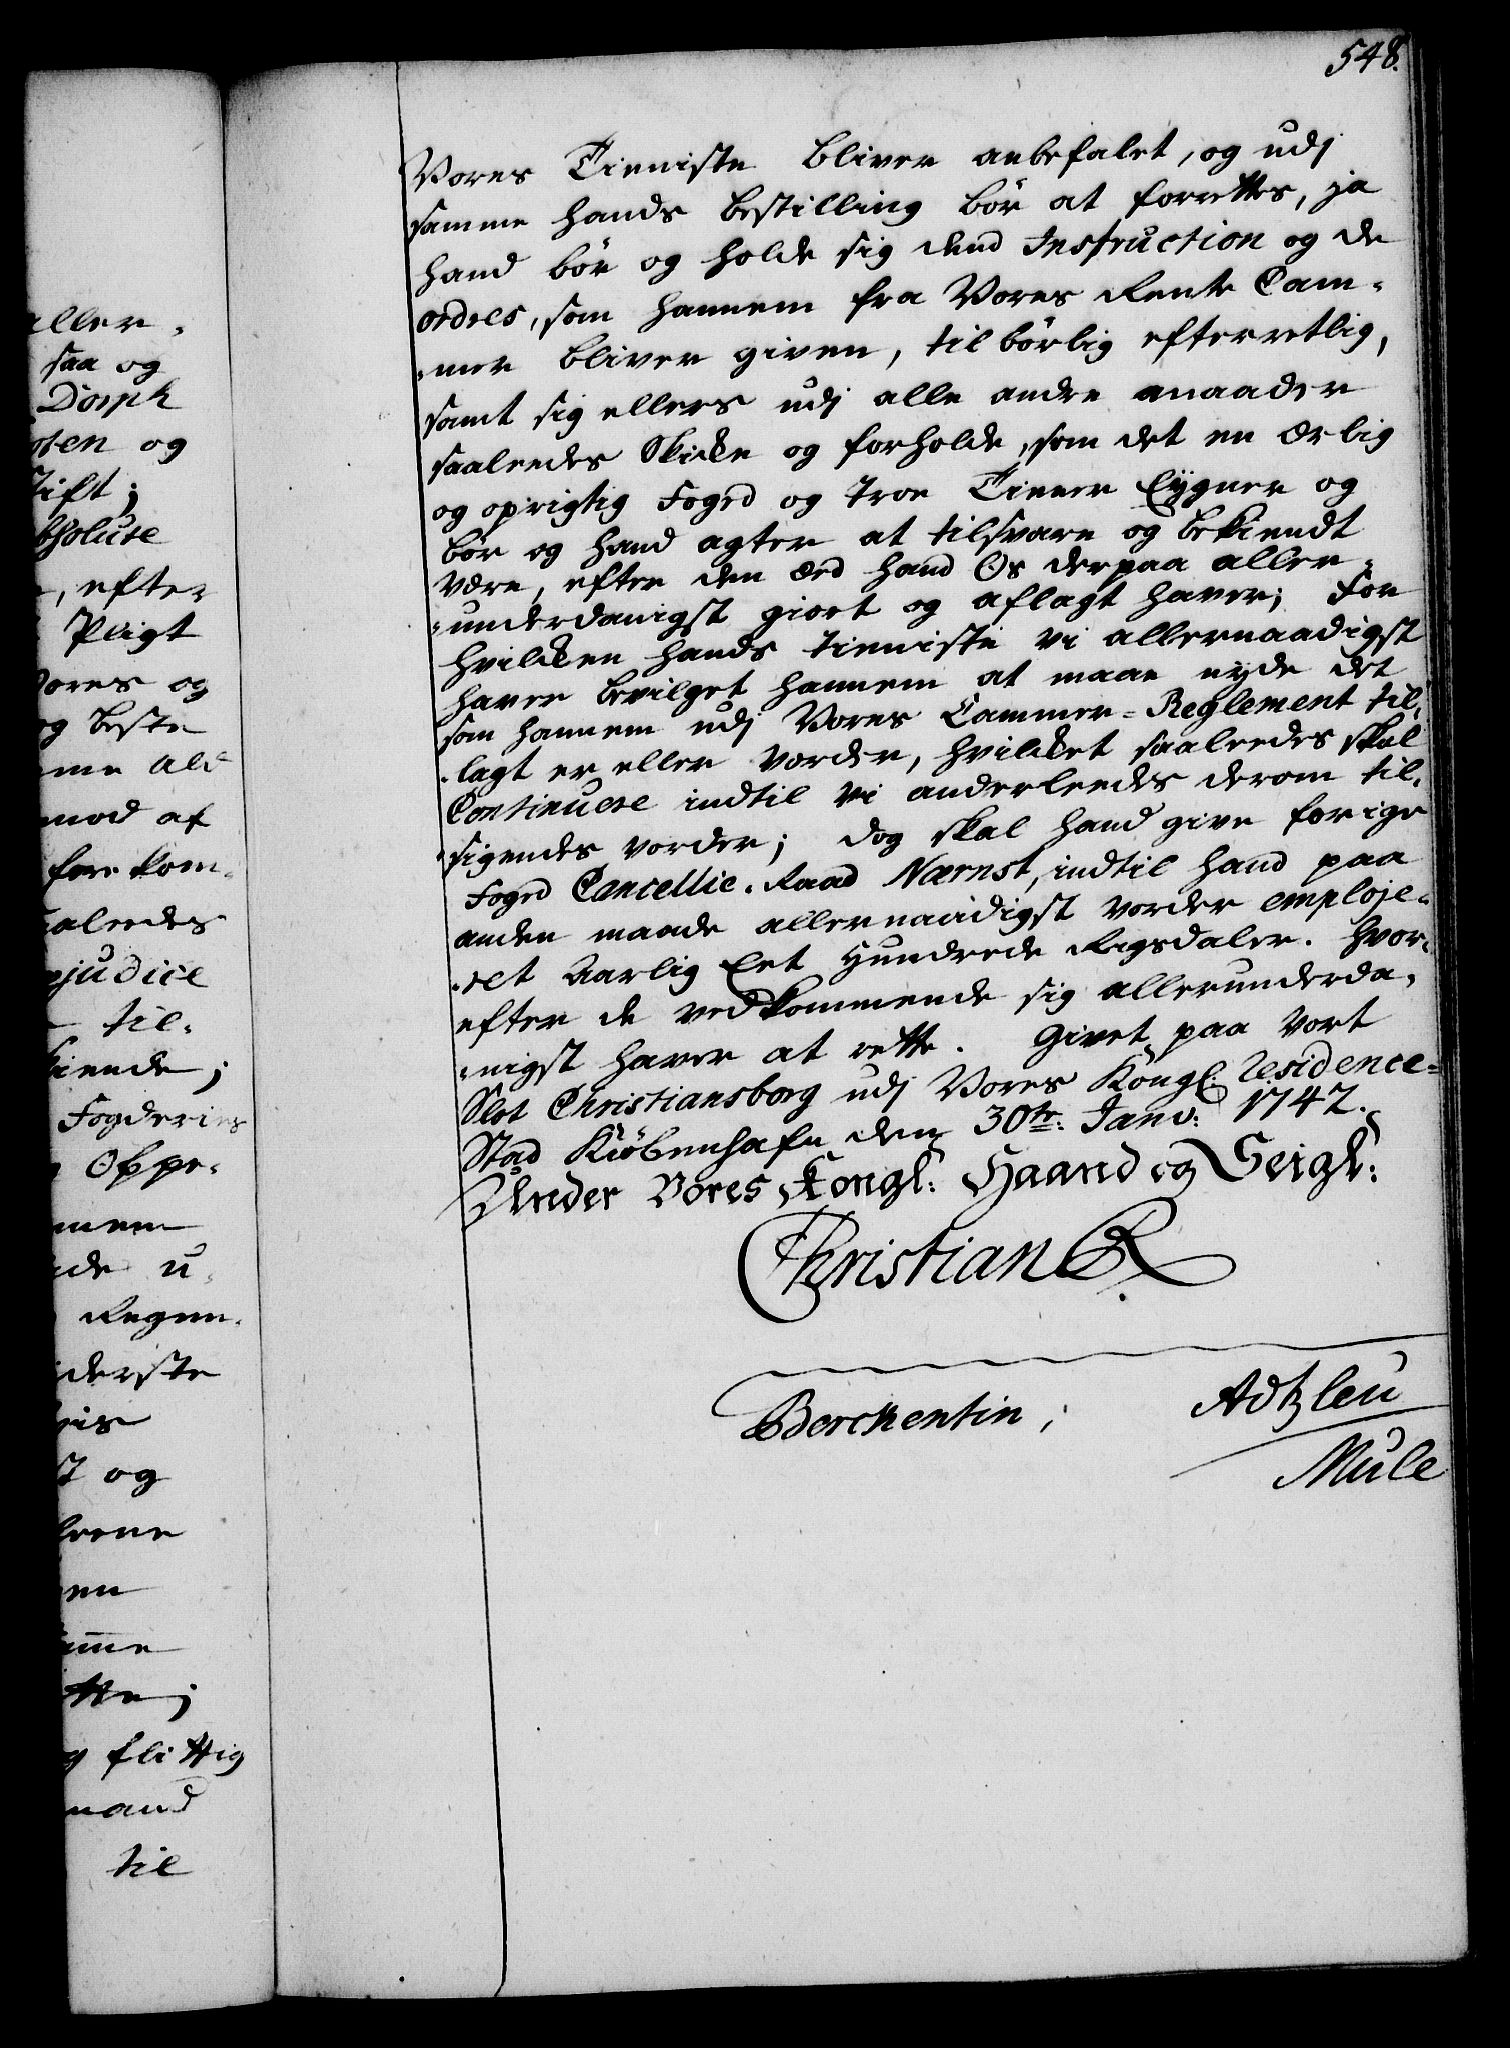 548.
Vores Tieniste bliver anbefalet, og udj
samme hands bestilling bör at forrettes, ja
hand bör og holde sig dend Instruction og de
ordres, som hannem fra Vores Rente Cam-
-mer bliver given, tilbörlig efterretlig,
samt sig ellers udj alle andre maader
saaleedes skicke og forholde, som det en ærlig
og oprigtig Foged og troe Tiener Eygner og
bör og hand agter at tilsvare og bekiendt
være, efter den æed hand Os derpaa aller-
-underdanigst giort og aflagt haver; For
hvilcken hands tieniste vi allernaadigst
haver bevilget hannem at maae nyde det
som hannem udj Vores Cammer-Reglement til-
-lagt er eller vorder, hvilcket saaleedes skal
Continuere indtil vi anderleedes derom til-
-sigendes vorder; dog skal hand give forige
Foged Cancellie-Raad Nærnst, indtil hand paa
anden maade allernaadigst vorder emploje-
-ret Aarlig Eet Hundrede Rigsdaler. Hvor-
efter de vedkommende sig allerunderda-
-nigst haver at rette. Givet paa Vort
Slot Christiansborg udj Vores Kongl: Residence-
Stad Kiöbenhafn den 30te: Janv: 1742.
Under Vores Kongl: Haand og Seigl:
Christian R.
Berckentin,
Adtzleu
Mule
aller-
saa og
Dorph
og
Stift;
efter
Pligt
Vores og
og beste
Ald
imod af
forekom-
saaleedes
præjudice
til-
kiende;
Fogderies
Oppe-
u-
Regnn-
og
flittig
til